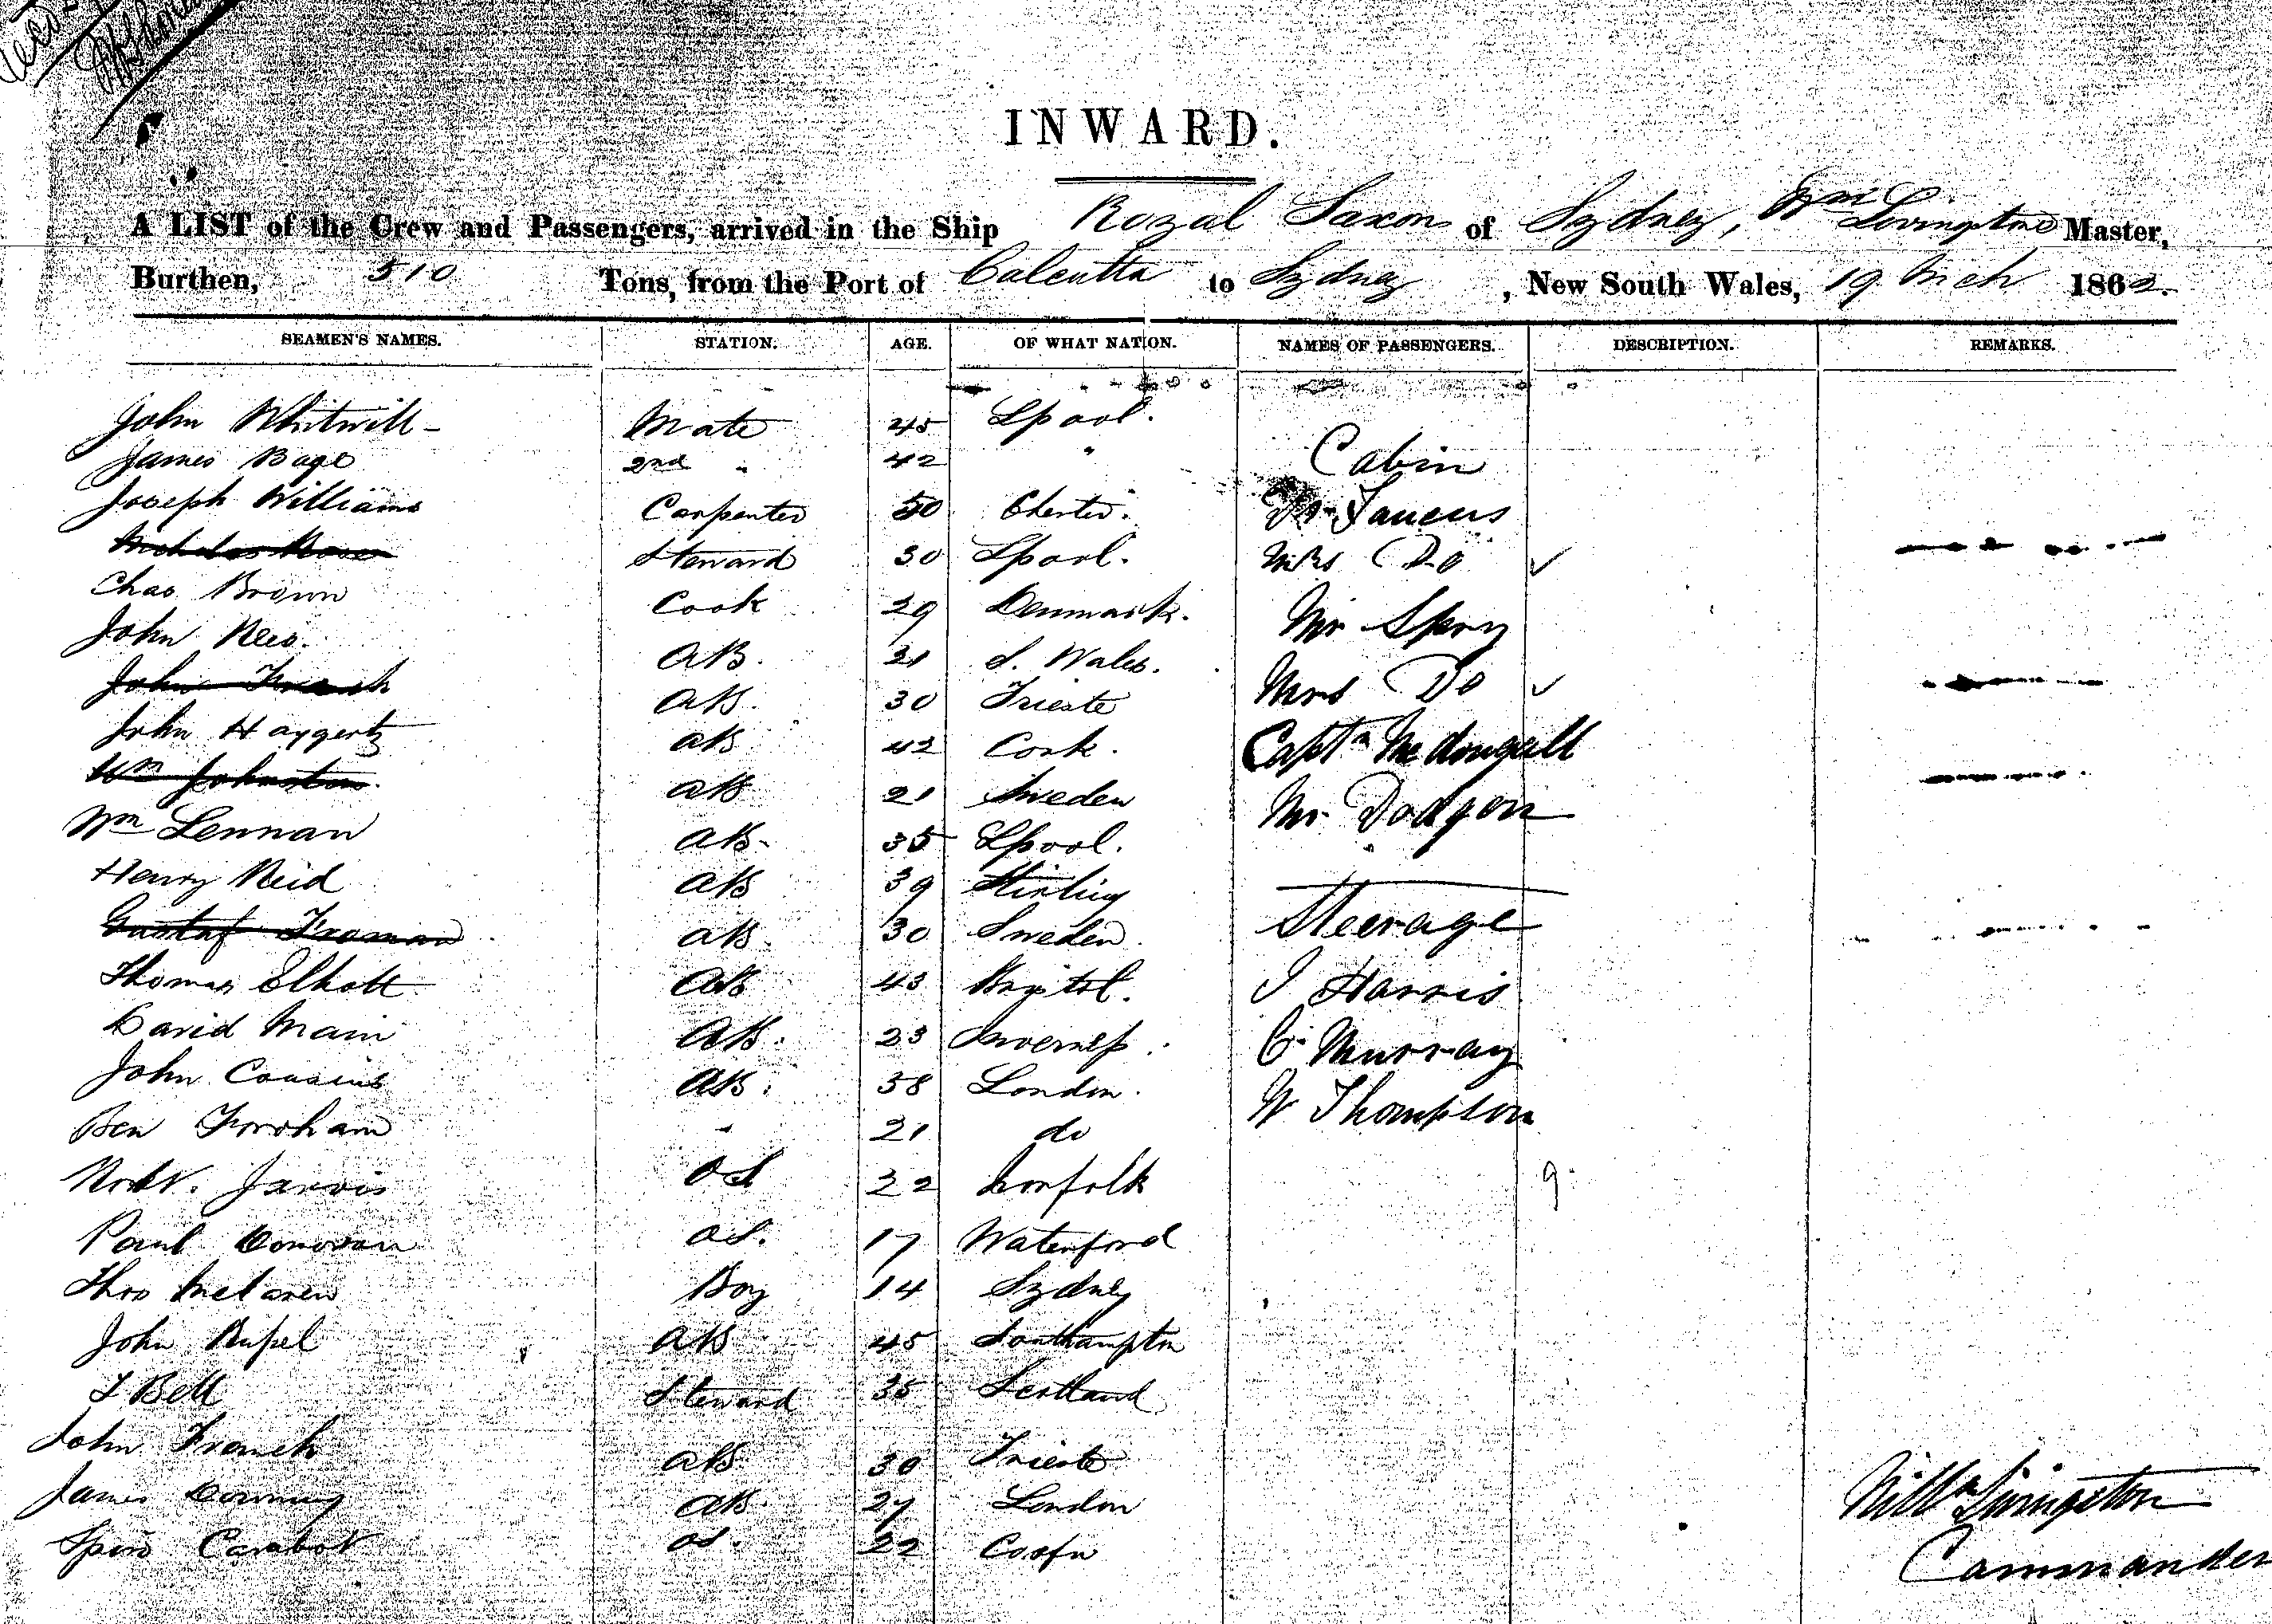 INWARD.
A LIST of the Crew and Passengers, arrived in the Ship Royal Saxon of Sydney, Wm Livingstone Master,
Burthen, 510 Tons, from the Port of Calcutta to Sydney, New South Wales, 19 Mch 1862.
SEAMEN'S NAMES. STATION. AGE. OF WHAT NATION. NAMES OF PASSENGERS. DESCRIPTION. REMARKS.
John Whitwill - Mate 45 Lpool.
James Bage 2nd " 42 " Cabin
Joseph Williams Carpenter 50 Chester. Faucus
Steward 30 Lpool. Mrs Do ✓
Chas Brown Cook 29 Denmark. Mr Spry
John Rees. AB. 21 S. Wales. Mrs Do ✓
John French AB. 30 Trieste
John Haggerty AB 42 Cork. Captn McDougall
Wm Johnston. AB 21 Sweden Mr Dodgson
Wm Lennan AB- 35 Lpool.
Henry Reid AB 39 Stirling
Gustaf Froman AB. 30 Sweden. Steerage
Thomas Elliott AB 43 Bristol. J Harris
David Main AB. 23 Inverness. C. Murray
John Cousins AB. 38 London. W Thompson
Ben Fordham " 21 do
Robt. Jarvis OS 22 Norfolk 9.
Paul Donovan OS. 17 Waterford
Thos McLaren Boy 14 Sydney
John Russel AB 45 Southampton
T Bell Steward 35 Scotland
John French AB 30 Trieste
James Downing AB 27 London Willm Livingston
Spiro Carabot OS. 22 Corfu Commander